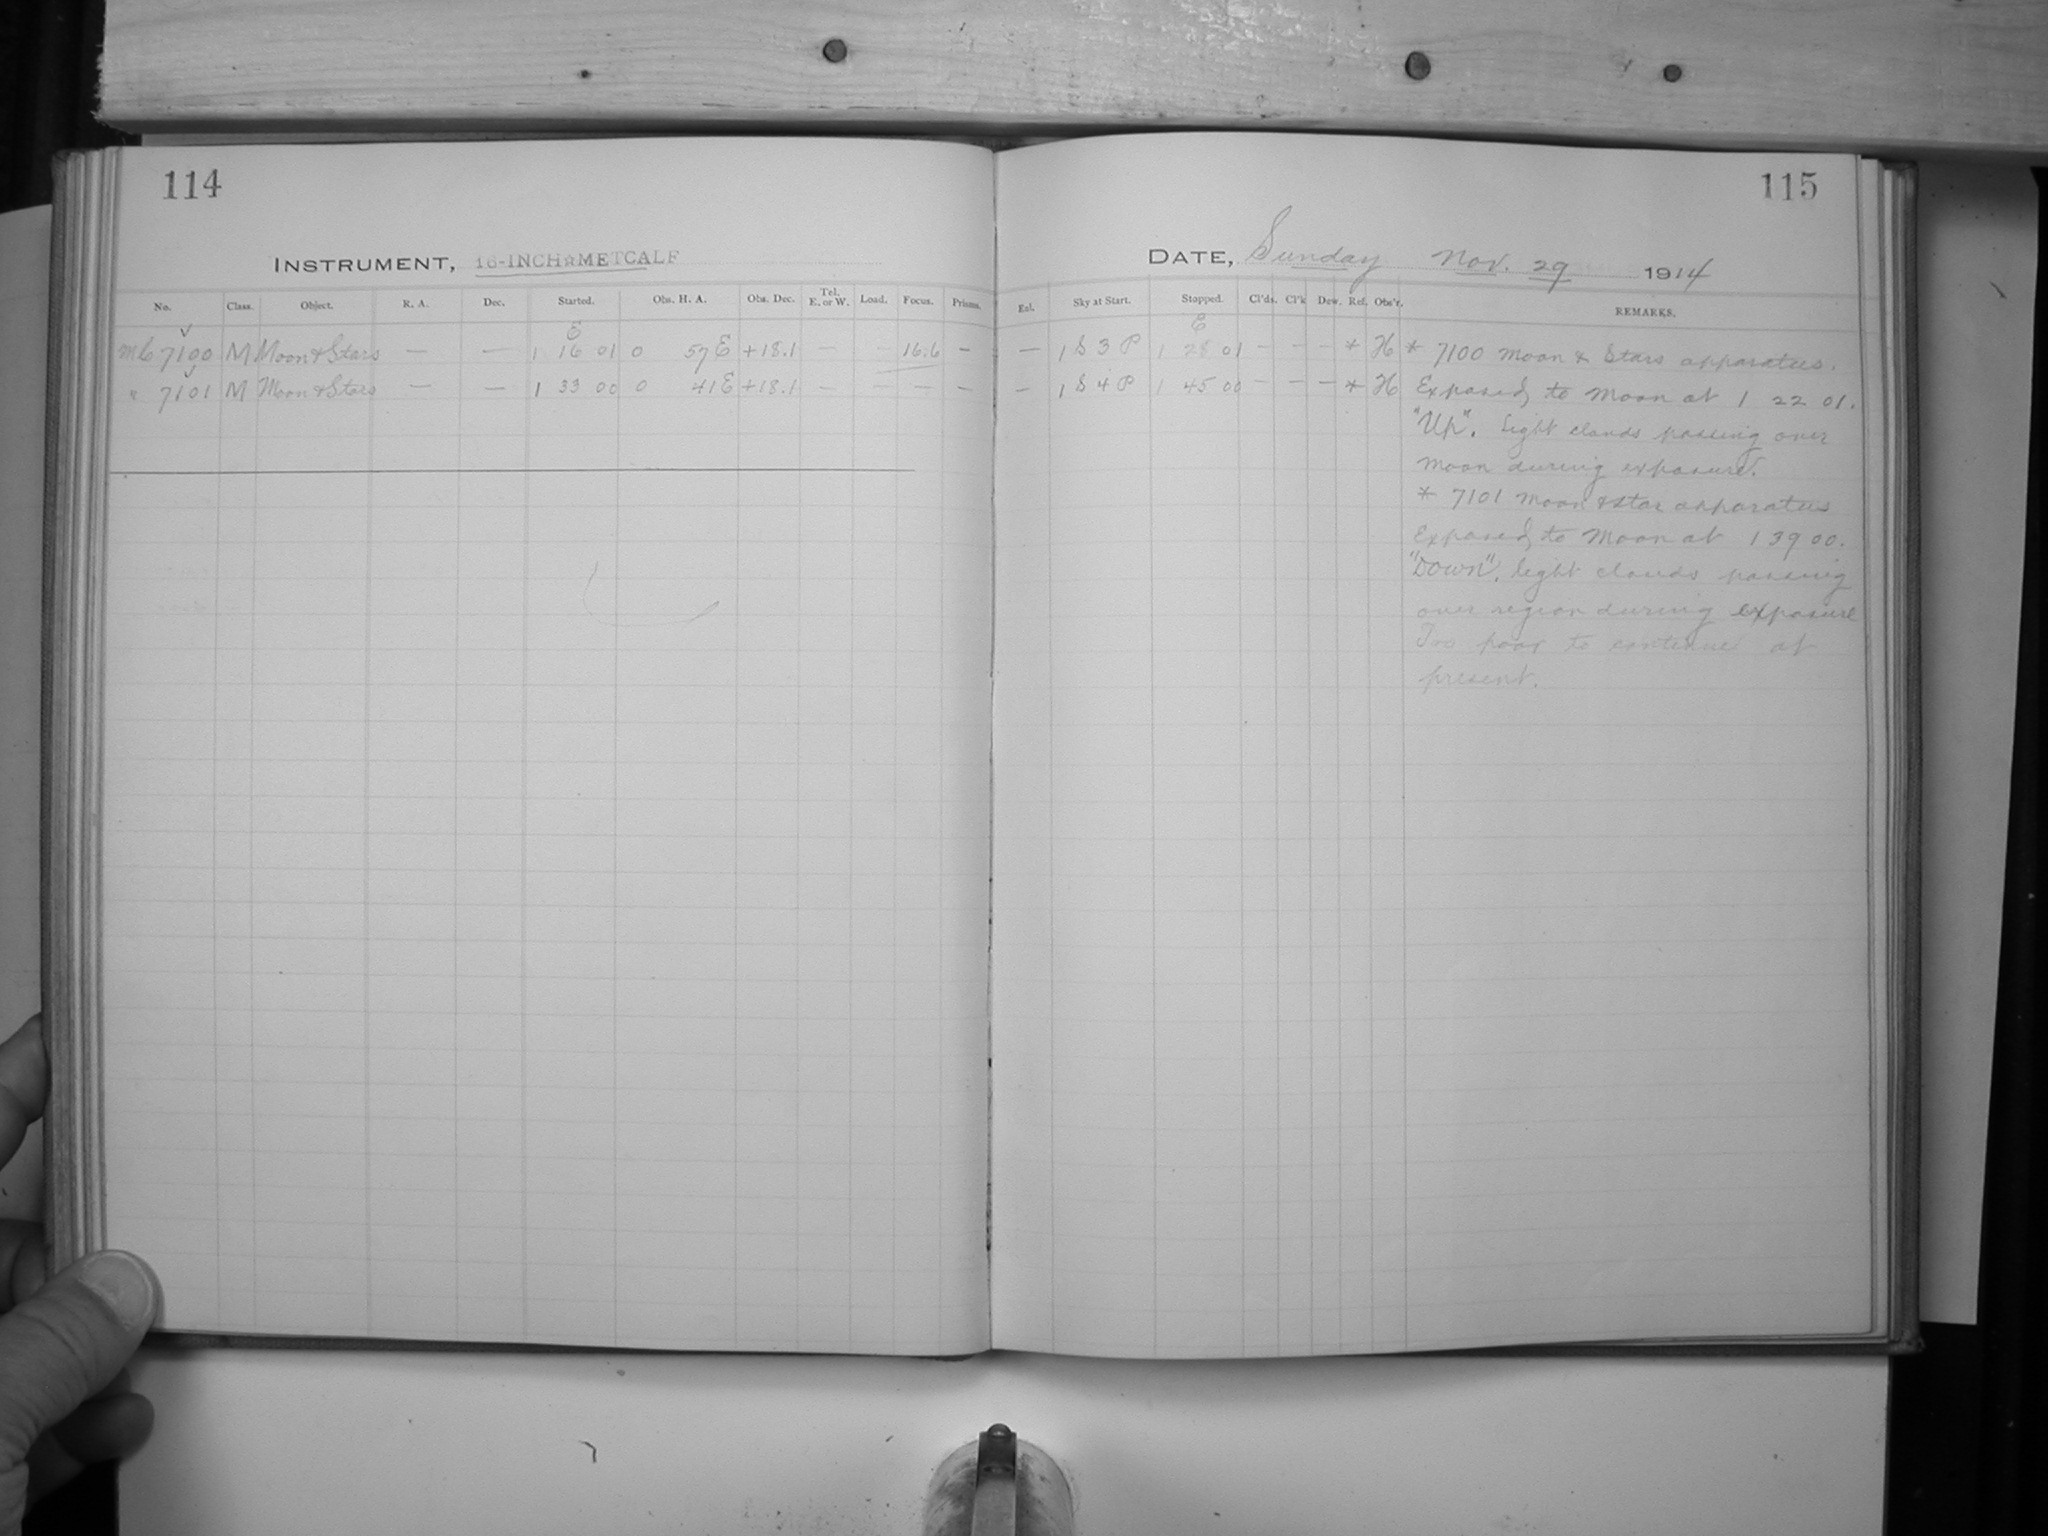 114
INSTRUMENT, 16-INCH METCALF
No. Class. Object. R. A. Dec. Started. Obs. H. A. Obs. Dec. Tel. E. or W. Load. Focus. Prisms.
E
MC 7100 M Moon & Stars — — 1 16 01 0 57 E +18.1 — — 16.6 —
" 7101 M Moon & Stars — — 1 33 00 0 41 E +18.1 — — — —
115
DATE, Sunday Nov. 29 1914
Enl. Sky at Start. Stopped. Cl'ds. Cl'k Dew. Ref. Obs'r. REMARKS.
E
— 1 S 3 P 1 28 01 — — — * H * 7100 Moon & Stars apparatus.
— 1 S 4 P 1 45 00 — — — * H Exposed to Moon at 1 22 01.
"Up". Light clouds passing over
Moon during exposure.
* 7101 Moon & Star apparatus
Exposed to Moon at 1 39 00.
"DOWN". light clouds passing
over region during exposure
Too poor to continue at
present.